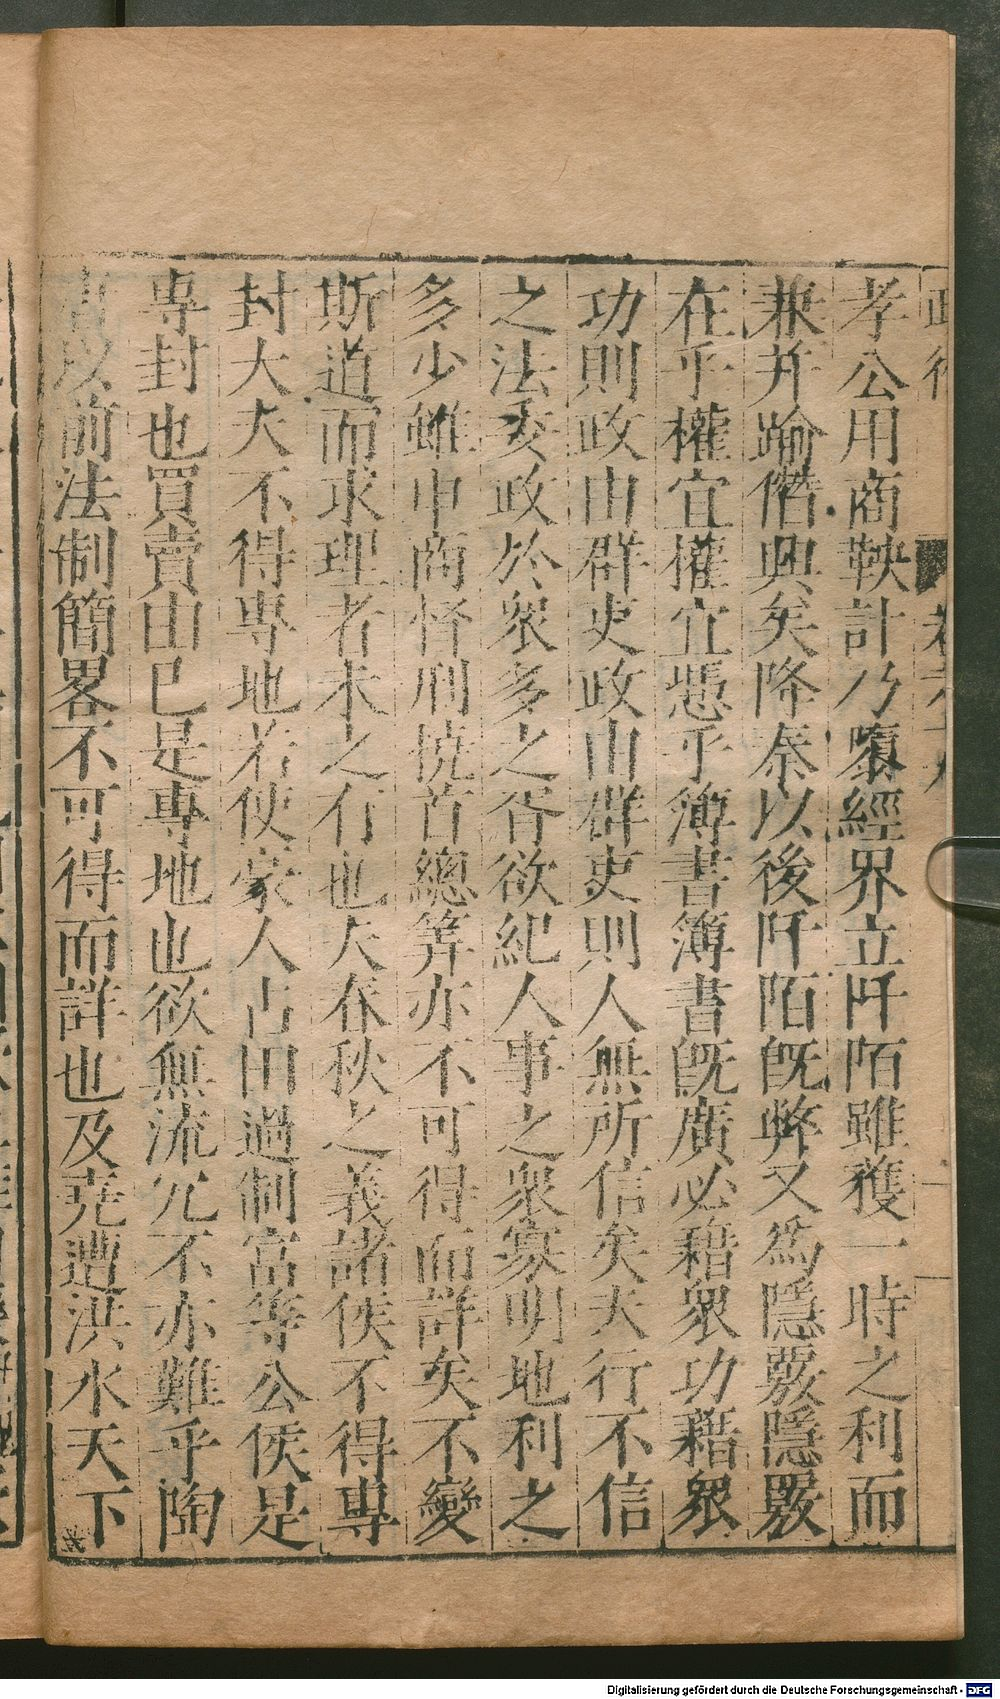 孝公用商鞅計乃隳經界立阡陌雖獲一時之利而
兼并踰僭興矣降秦以後阡陌旣弊又為隱覈隱覈
在乎權宜權宜憑乎簿書簿書旣廣必藉眾功藉眾
功則政由群吏政由群吏則人無所信矣夫行不信
之法委政於眾多之胥欲紀人事之眾寡明地利之
多少雖申商督刑撓首總算亦不可得而詳矣不變
斯道而求理者未之有也夫春秋之義諸侯不得專
封大夫不得專地若使豪人占田過制富等公侯是
專封也買賣由己是專地也欲無流冗不亦難乎陶
以前法制簡畧不可得而詳也及堯遭洪水天下
Digitalisierung gefördert durch die Deutsche Forschungsgemeinschaft - DFG